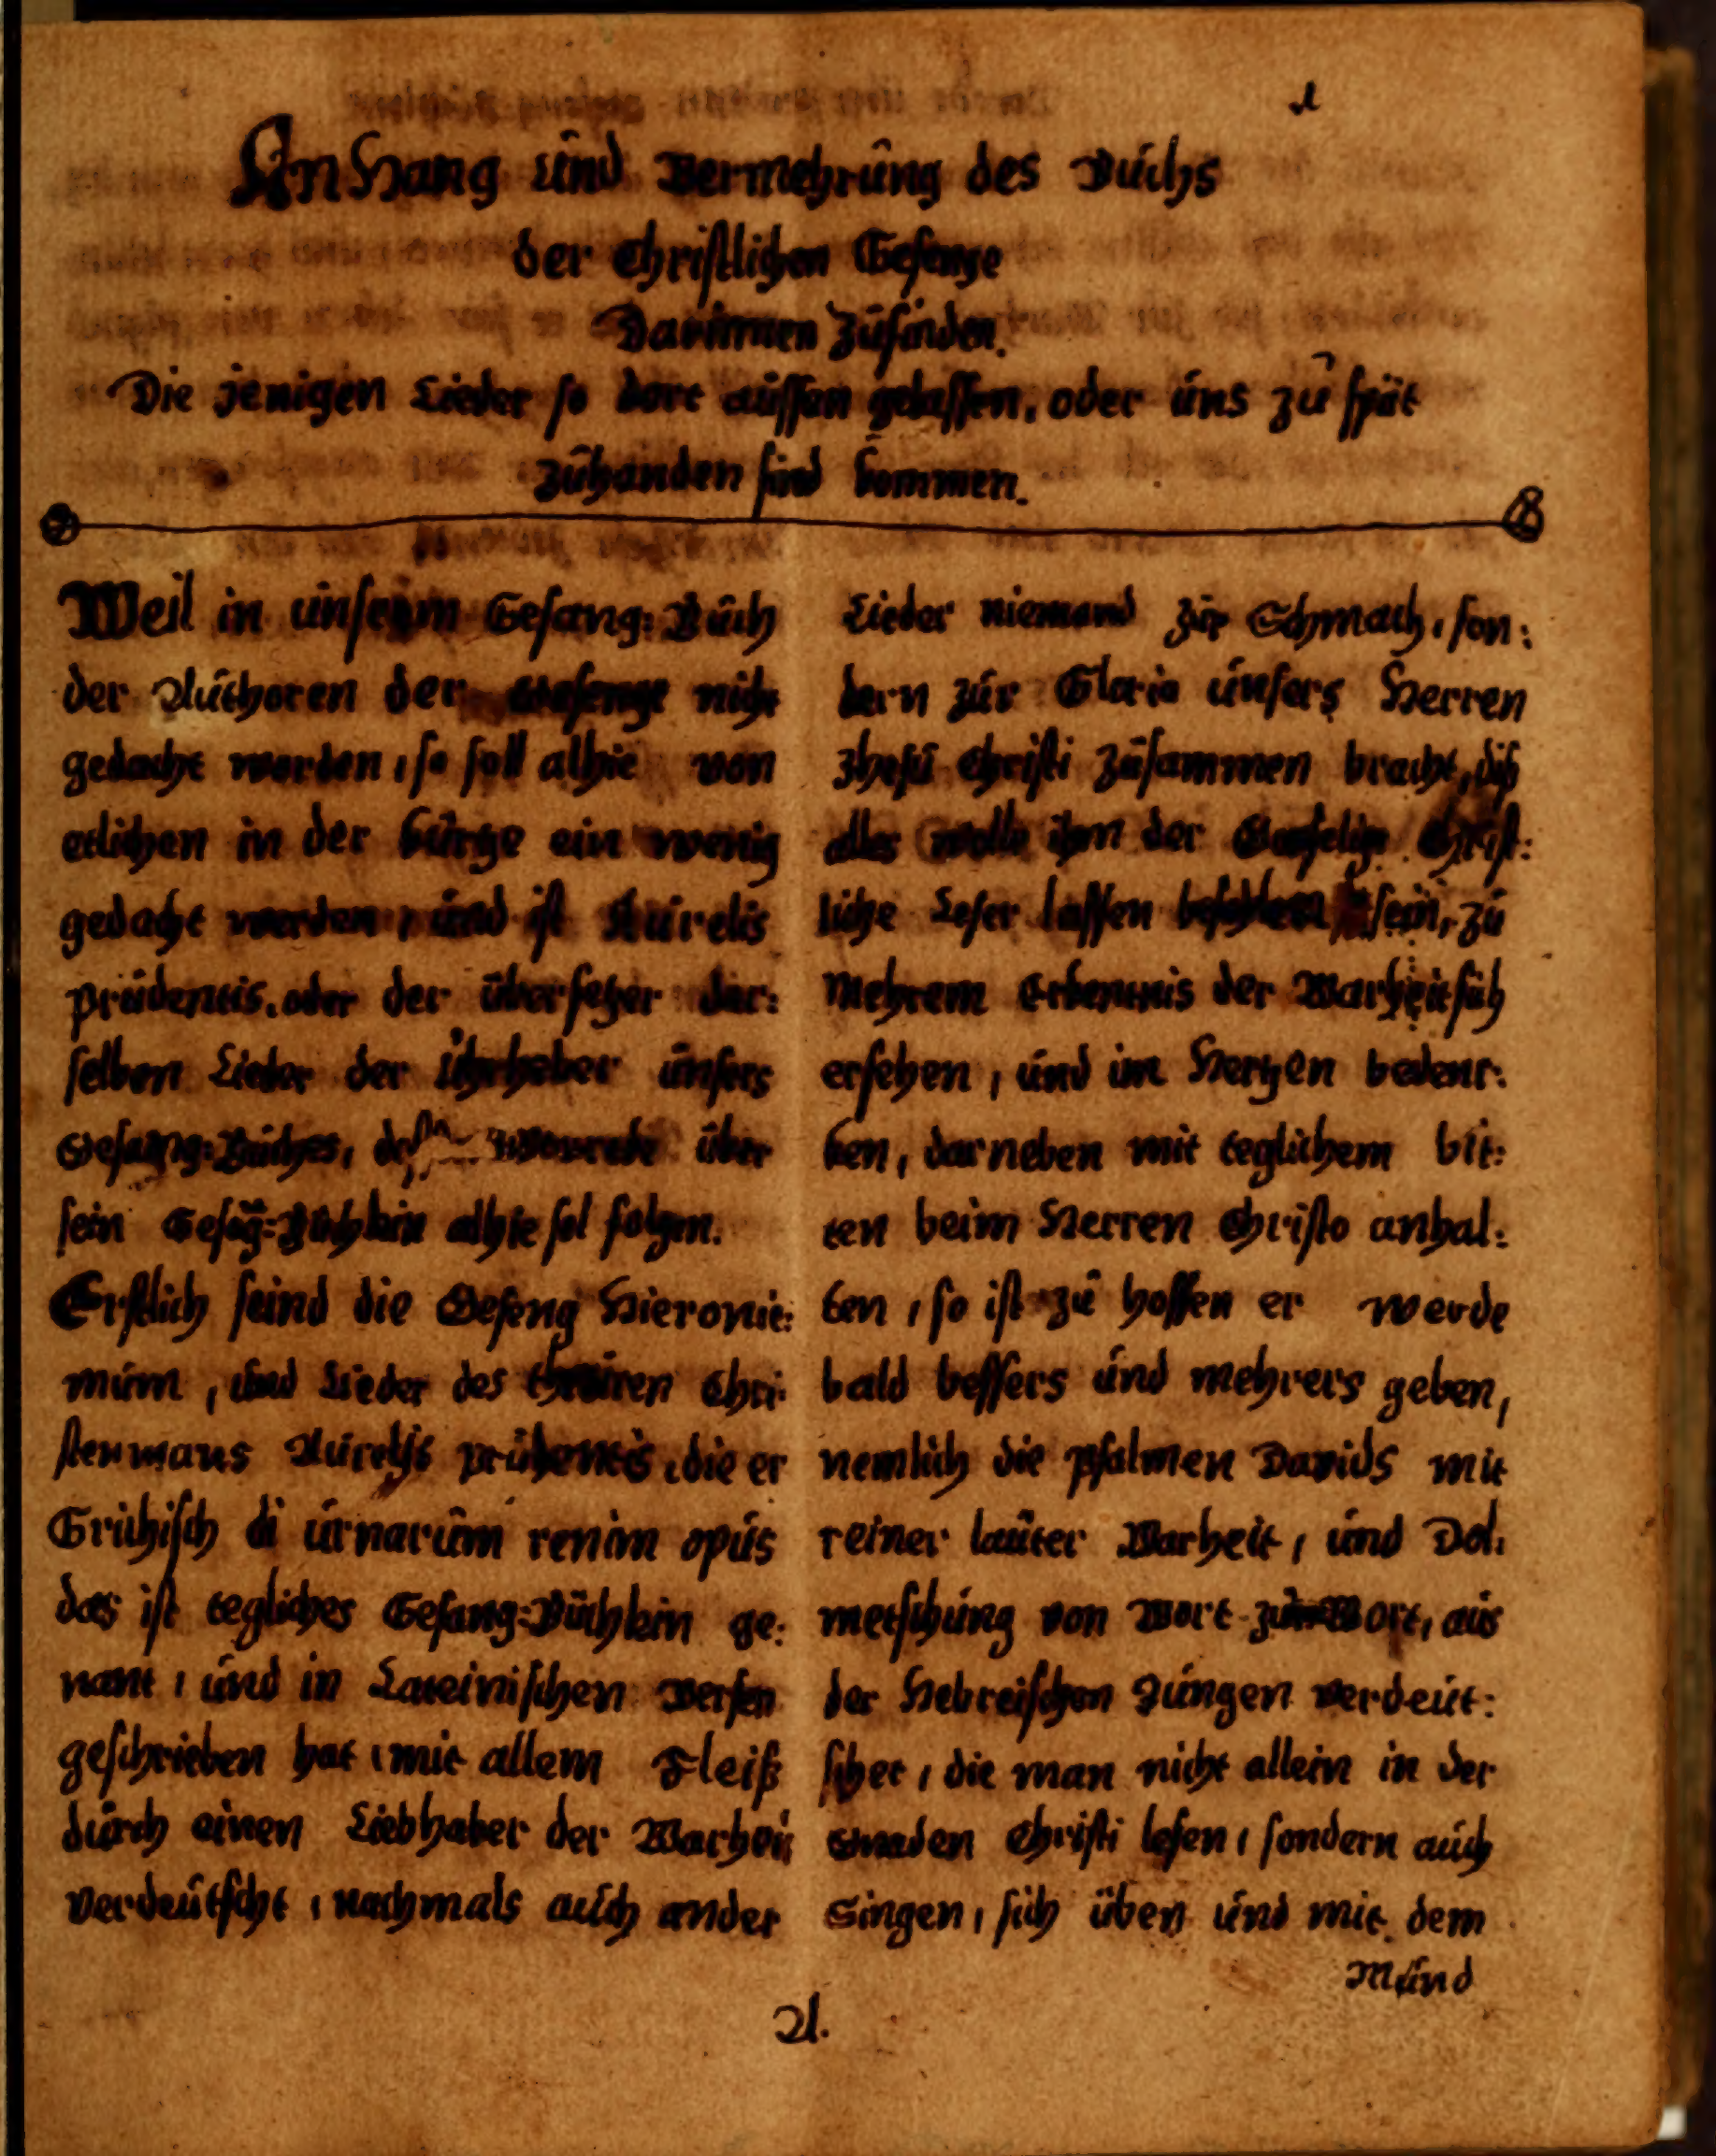 1
Anhang und Vermehrung des Buchs
der Christlichen Gesenge
Darinnen Zufinden.
Die jenigen Lieder so dort aussen gelassen, oder uns zu spät
zuhanden sind kommen.
Weil in unserm Gesang-Buch
der Authoren der Gesenge nicht
gedacht worden, so soll alhie von
etlichen in der kürtze ein wenig
gedacht werden, und ist Aurelis
prudentis, oder der übersetzer der-
selben Lieder der Uhrheber unsers
Gesang-Buches, Vorrede über
sein Gesāg-Büchlein alhie sol folgen.
Erstlich seind die Geseng Hieronie-
mum, und Lieder des theüren Chri-
stenmans Aurelis prudentis, die er
Grichisch di urnarum renim opus
das ist tegliches Gesang-Büchlein ge-
nant, und in Lateinischen Versen
geschrieben hat, mit allem Fleiß
durch einen Liebhaber der Warheit
verdeutscht, nachmals auch ander
Lieder niemand zur Schmach, son-
dern zur Gloria unsers Herren
Jhesu Christi zusammen bracht, diß
alles wolle ihm der Christ-
liche Leser lassen befohlen sein, zu
Mehrem Erkentnis der Warheit sich
ersehen, und im Hertzen bedenc-
ken, darneben mit teglichem bit-
ten beim Herren Christo anhal-
ten, so ist zu hoffen er werde
bald bessers und mehrers geben,
nemlich die psalmen Davids mit
reiner lauter Warheit, und Dol-
metschung von Wort zum Wort, aus
der Hebreischen Zungen verdeut-
schet, die man nicht allein in der
Gnaden Christi lesen, sondern auch
Singen, sich üben und mit dem
Mund
A.